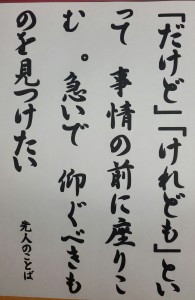 「だけど」「けれども」とい
って　事情の前に座りこ
む。急いで　仰ぐべきも
のを見つけたい
先人のことば